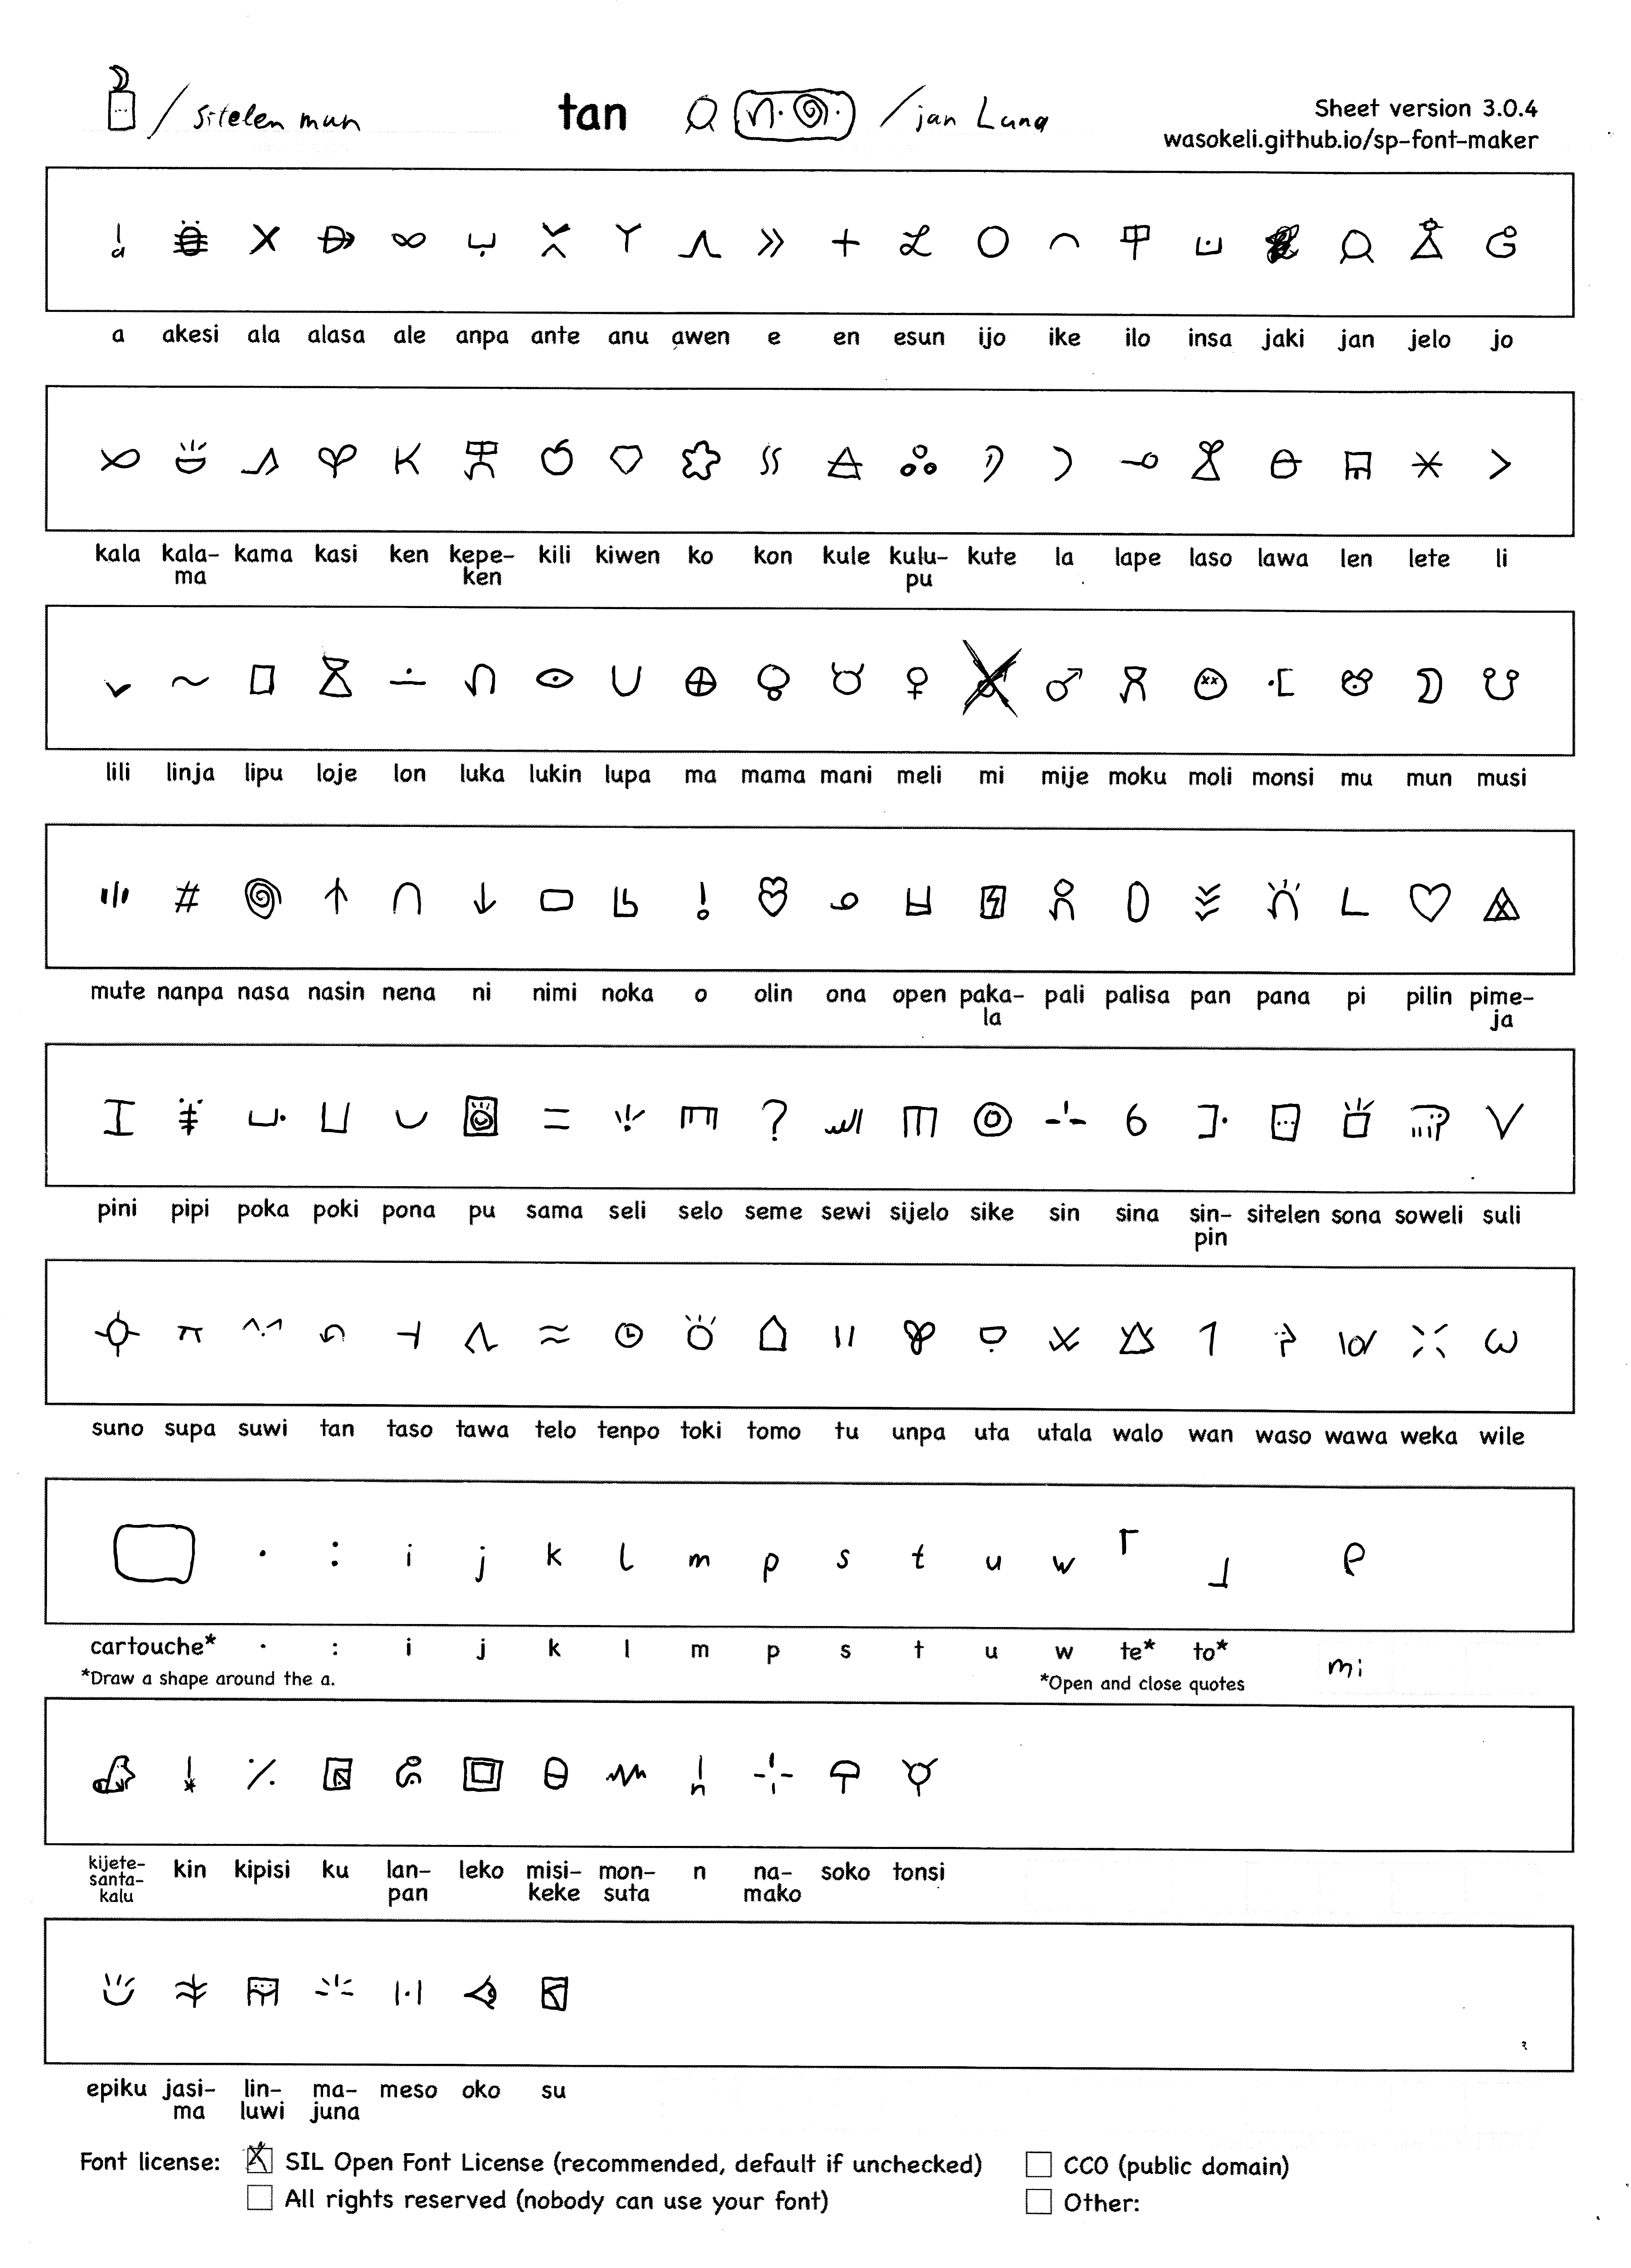 / sitelen mun tan / jan Luna Sheet version 3.0.4
wasokeli.github.io/sp-font-maker
a akesi ala alasa ale anpa ante anu awen e en esun ijo ike ilo insa jaki jan jelo jo
kala kala- kama kasi ken kepe- kili kiwen ko kon kule kulu- kute la lape laso lawa len lete li
ma ken pu
lili linja lipu loje lon luka lukin lupa ma mama mani meli mi mije moku moli monsi mu mun musi
#
!
mute nanpa nasa nasin nena ni nimi noka o olin ona open paka- pali palisa pan pana pi pilin pime-
la ja
?
pini pipi poka poki pona pu sama seli selo seme sewi sijelo sike sin sina sin- sitelen sona soweli suli
pin
suno supa suwi tan taso tawa telo tenpo toki tomo tu unpa uta utala walo wan waso wawa weka wile
· : i j k l m p s t u w
cartouche* · : i j k l m p s t u w te* to*
mi
*Draw a shape around the a. *Open and close quotes
kijete- kin kipisi ku lan- leko misi- mon- n na- soko tonsi
santa- pan keke suta mako
kalu
epiku jasi- lin- ma- meso oko su
ma luwi juna
Font license: SIL Open Font License (recommended, default if unchecked) CC0 (public domain)
All rights reserved (nobody can use your font) Other: